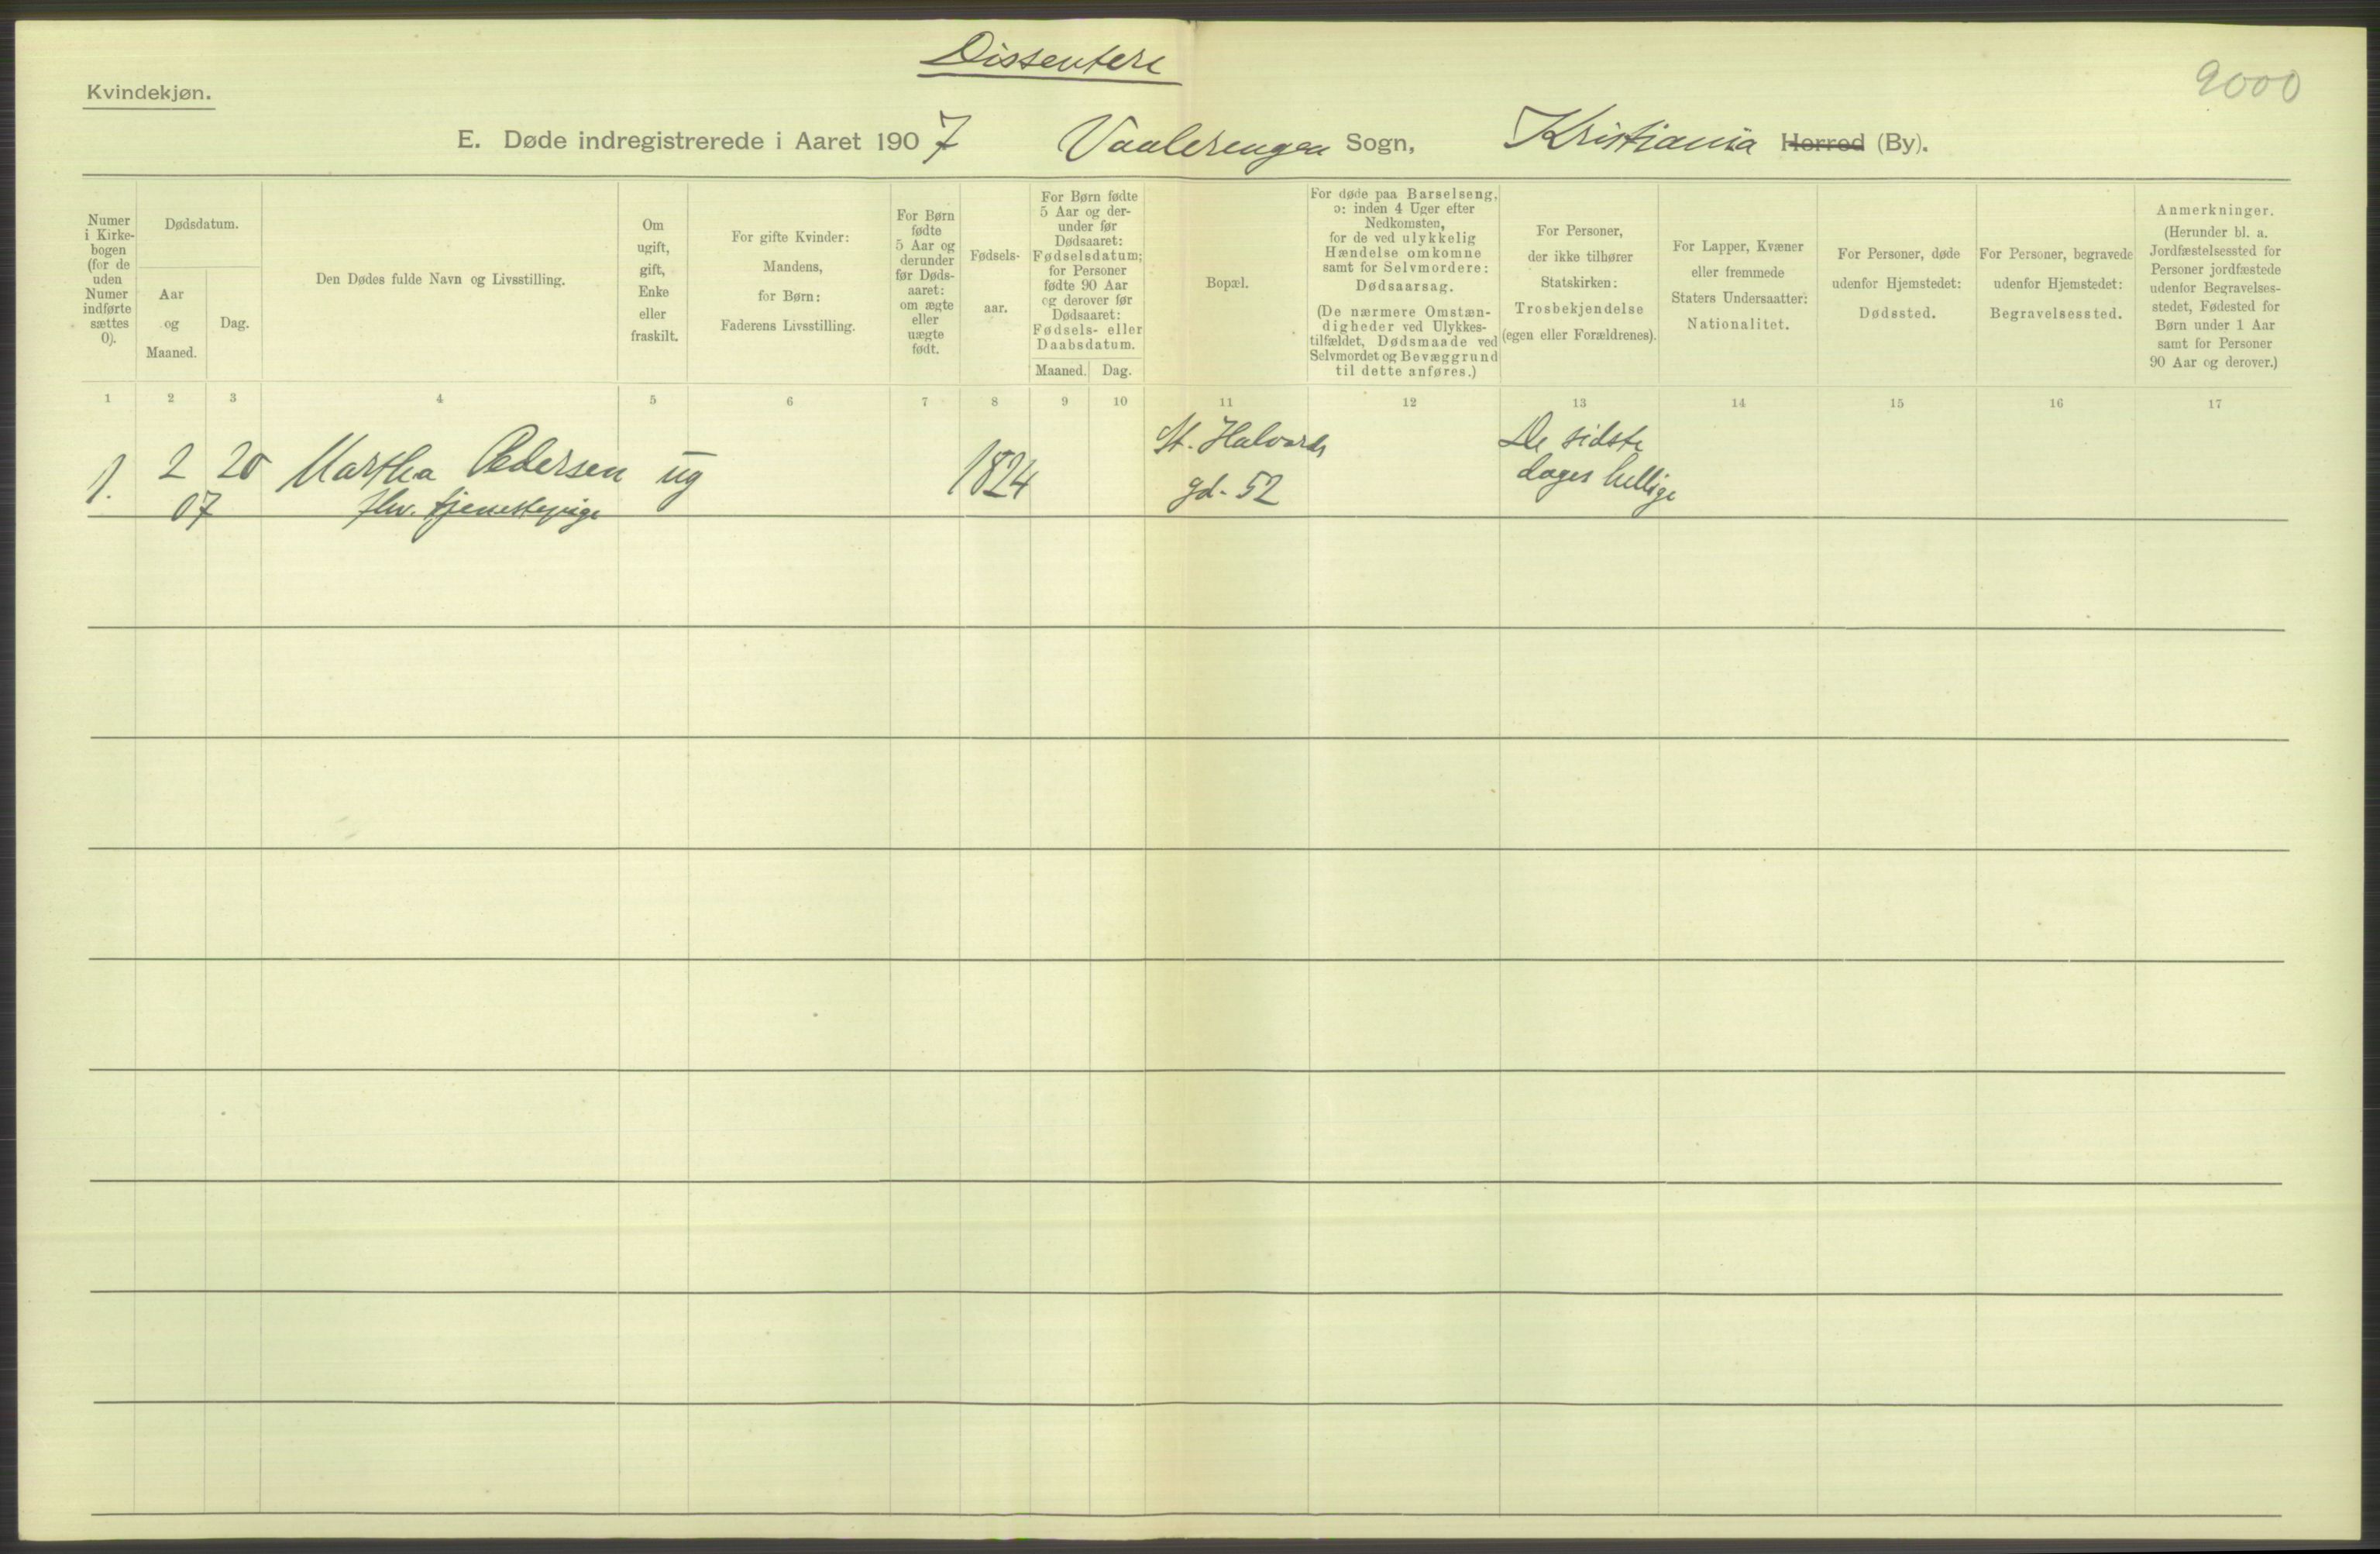 Dissentere
Kvindekjøn.
9000
E. Døde indregistrerede i Aaret 1907 Vaalerengen Sogn, Kristiania Herred (By).
Numer
i Kirke-
bogen
(for de
uden
Numer
indførte
sættes
0).
Dødsdatum.
Aar
og
Maaned.
Dag.
Den Dødes fulde Navn og Livsstilling.
Om
ugift,
gift,
Enke
eller
fraskilt.
For gifte Kvinder:
Mandens,
for Børn:
Faderens Livsstilling.
For Børn
fødte
5 Aar og
derunder
før Døds-
aaret:
om ægte
eller
uægte
født.
Fødsels-
aar.
For Børn fødte
5 Aar og der-
under før
Dødsaaret:
Fødselsdatum;
for Personer
fødte 90 Aar
og derover før
Dødsaaret:
Fødsels- eller
Daabsdatum.
Maaned.
Dag.
Bopæl.
For døde paa Barselseng,
ɔ: inden 4 Uger efter
Nedkomsten,
for de ved ulykkelig
Hændelse omkomne
samt for Selvmordere:
Dødsaarsag.
(De nærmere Omstæn-
digheder ved Ulykkes-
tilfældet, Dødsmaade ved
Selvmordet og Bevæggrund
til dette anføres.)
For Personer,
der ikke tilhører
Statskirken:
Trosbekjendelse
(egen eller Forældrenes).
For Lapper, Kvæner
eller fremmede
Staters Undersaatter:
Nationalitet.
For Personer, døde
udenfor Hjemstedet:
Dødssted.
For Personer, begravede
udenfor Hjemstedet:
Begravelsessted.
Anmerkninger.
(Herunder bl. a.
Jordfæstelsessted for
Personer jordfæstede
udenfor Begravelses-
stedet, Fødested for
Børn under 1 Aar
samt for Personer
90 Aar og derover.)
1 2 3 4 5 6 7 8 9 10 11 12 13 14 15 16 17
1. 2 20 Martha Pedersen ug 1824 St. Halvards De sidste
07 fhv. tjenestepige gd. 52 dages hellige